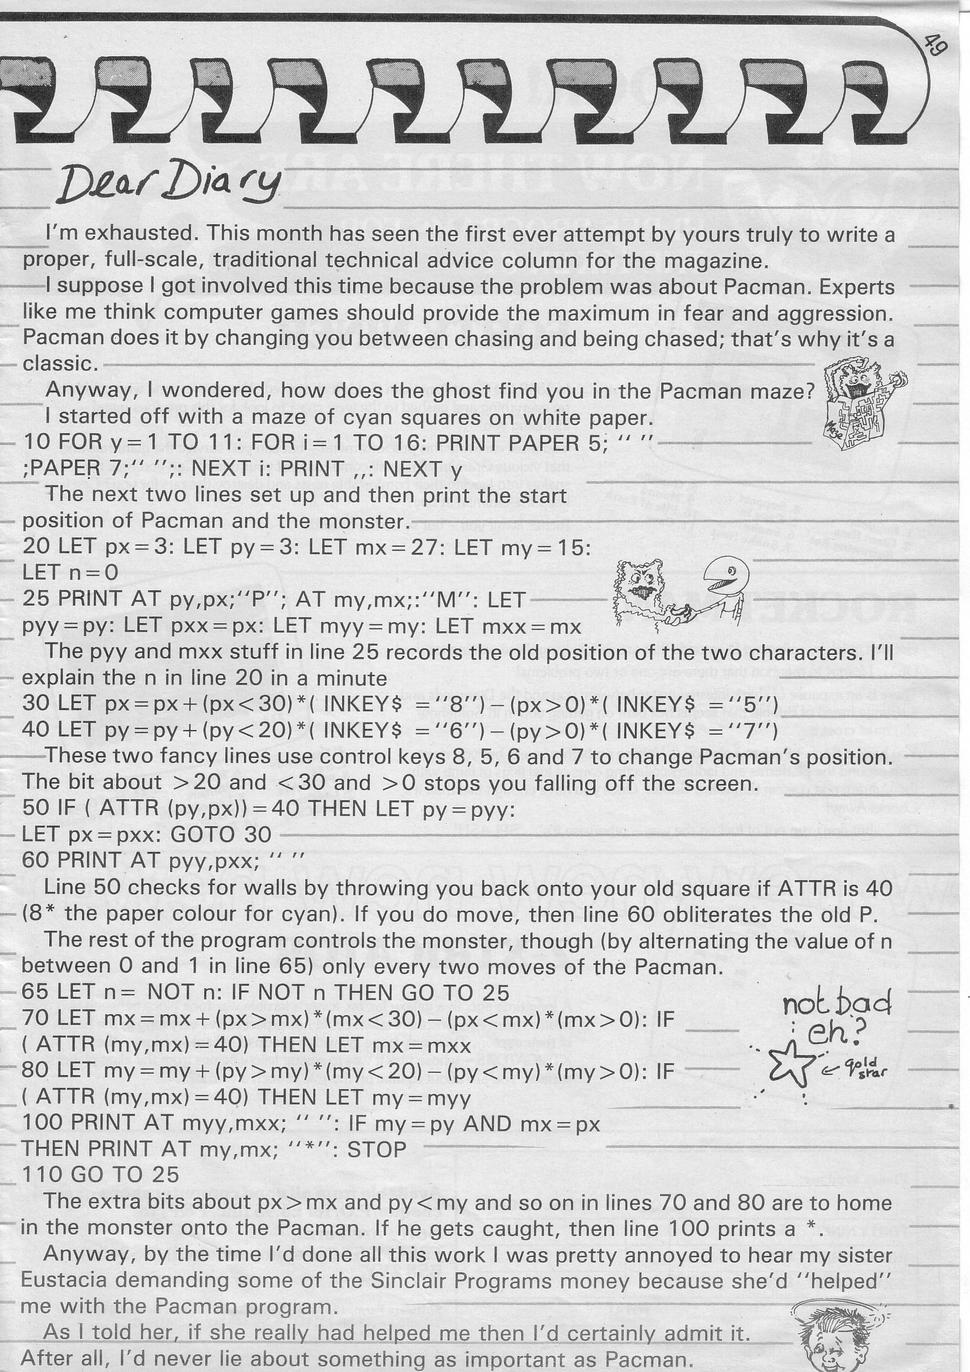 49
Dear Diary
I'm exhausted. This month has seen the first ever attempt by yours truly to write a
proper, full-scale, traditional technical advice column for the magazine.
I suppose I got involved this time because the problem was about Pacman. Experts
like me think computer games should provide the maximum in fear and aggression.
Pacman does it by changing you between chasing and being chased; that's why it's a
classic.
Anyway, I wondered, how does the ghost find you in the Pacman maze?
I started off with a maze of cyan squares on white paper.
Maze
10 FOR y=1 TO 11: FOR i=1 TO 16: PRINT PAPER 5; “ ”
;PAPER 7;“ ”;: NEXT i: PRINT ,,: NEXT y
The next two lines set up and then print the start
position of Pacman and the monster.
20 LET px=3: LET py=3: LET mx=27: LET my=15:
LET n=0
25 PRINT AT py,px;“P”; AT my,mx;:“M”: LET
pyy=py: LET pxx=px: LET myy=my: LET mxx=mx
The pyy and mxx stuff in line 25 records the old position of the two characters. I'll
explain the n in line 20 in a minute
30 LET px=px+(px<30)*( INKEY$ =“8”)−(px>0)*( INKEY$ =“5”)
40 LET py=py+(py<20)*( INKEY$ =“6”)−(py>0)*( INKEY$ =“7”)
These two fancy lines use control keys 8, 5, 6 and 7 to change Pacman's position.
The bit about >20 and <30 and >0 stops you falling off the screen.
50 IF ( ATTR (py,px))=40 THEN LET py=pyy:
LET px=pxx: GOTO 30
60 PRINT AT pyy,pxx; “ ”
Line 50 checks for walls by throwing you back onto your old square if ATTR is 40
(8* the paper colour for cyan). If you do move, then line 60 obliterates the old P.
The rest of the program controls the monster, though (by alternating the value of n
between 0 and 1 in line 65) only every two moves of the Pacman.
65 LET n= NOT n: IF NOT n THEN GO TO 25
70 LET mx=mx+(px>mx)*(mx<30)−(px<mx)*(mx>0): IF
( ATTR (my,mx)=40) THEN LET mx=mxx
80 LET my=my+(py>my)*(my<20)−(py<my)*(my>0): IF
( ATTR (my,mx)=40) THEN LET my=myy
not bad
eh?
gold
star
100 PRINT AT myy,mxx; “ ”: IF my=py AND mx=px
THEN PRINT AT my,mx; “*”: STOP
110 GO TO 25
The extra bits about px>mx and py<my and so on in lines 70 and 80 are to home
in the monster onto the Pacman. If he gets caught, then line 100 prints a *.
Anyway, by the time I'd done all this work I was pretty annoyed to hear my sister
Eustacia demanding some of the Sinclair Programs money because she'd “helped”
me with the Pacman program.
As I told her, if she really had helped me then I'd certainly admit it.
After all, I'd never lie about something as important as Pacman.